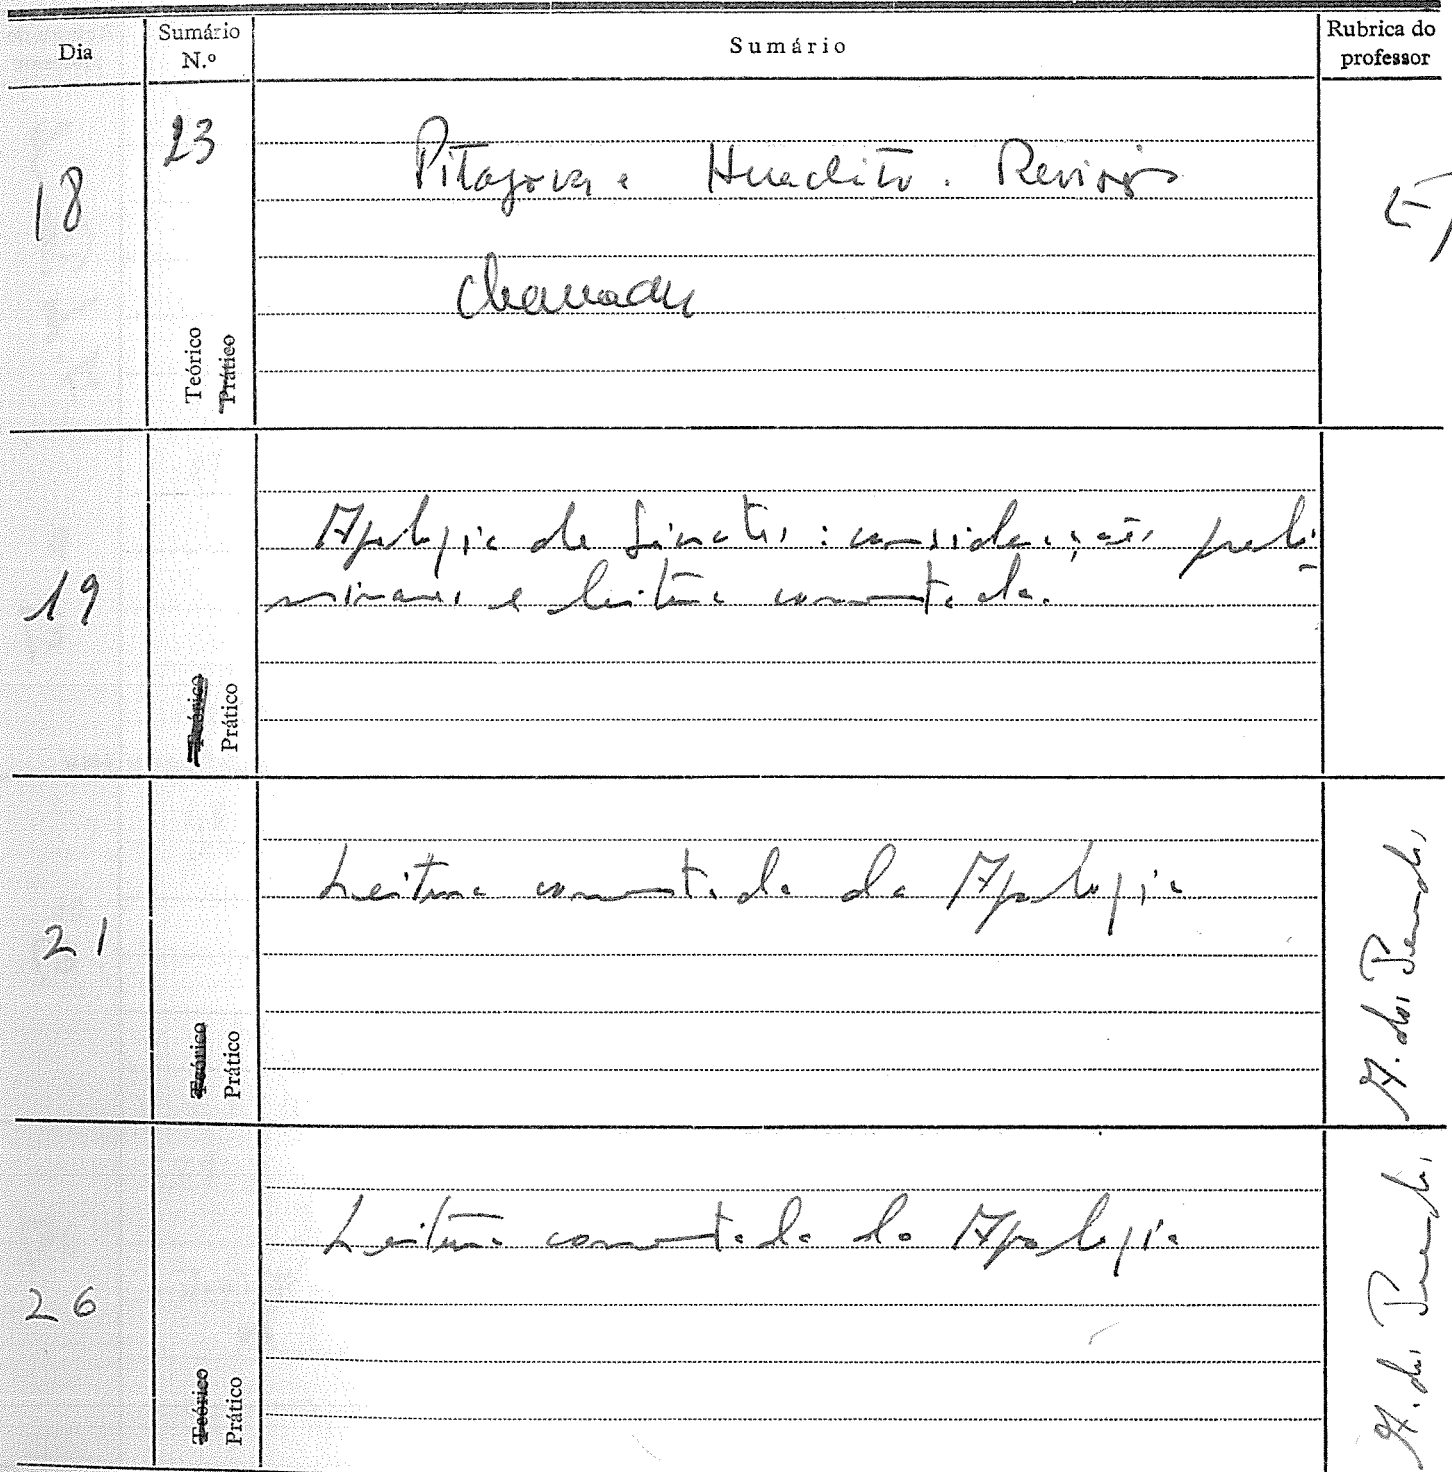 Dia
Sumário
N.º
Sumário
Rubrica do
professor
18
23
Pitagoras e Heraclito. Revisões
Chamadas
Teórico
Prático
19
Apologia de Sócrates: considerações preli-
minares e leitura comentada.
Teórico
Prático
21
Leitura comentada da Apologia
Teórico
Prático
26
Leitura comentada da Apologia
Teórico
Prático